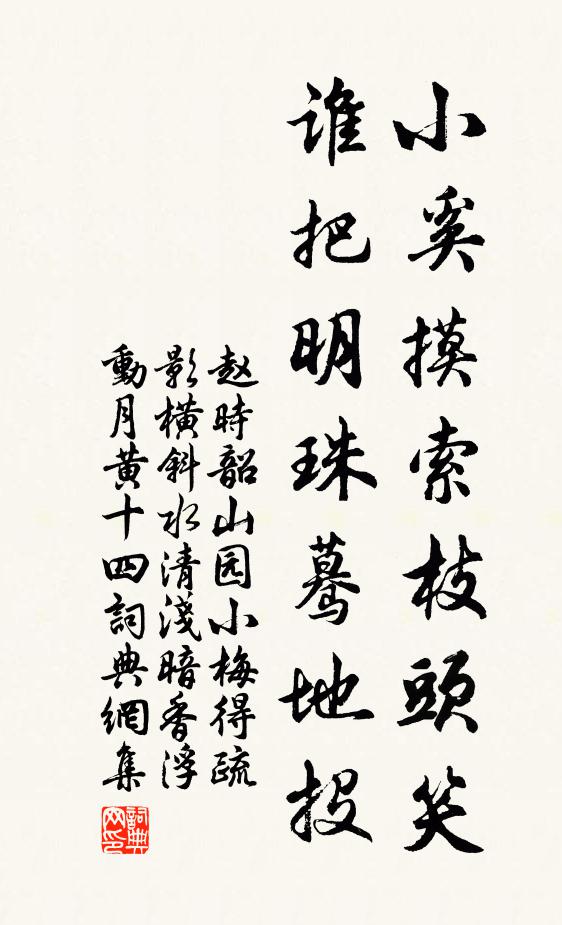 小奚摸索枝頭笑
誰把明珠驀地投
赵時韶山园小梅得疏
影橫斜水清淺暗香浮
動月黄十四詞典網集
詞典
网印